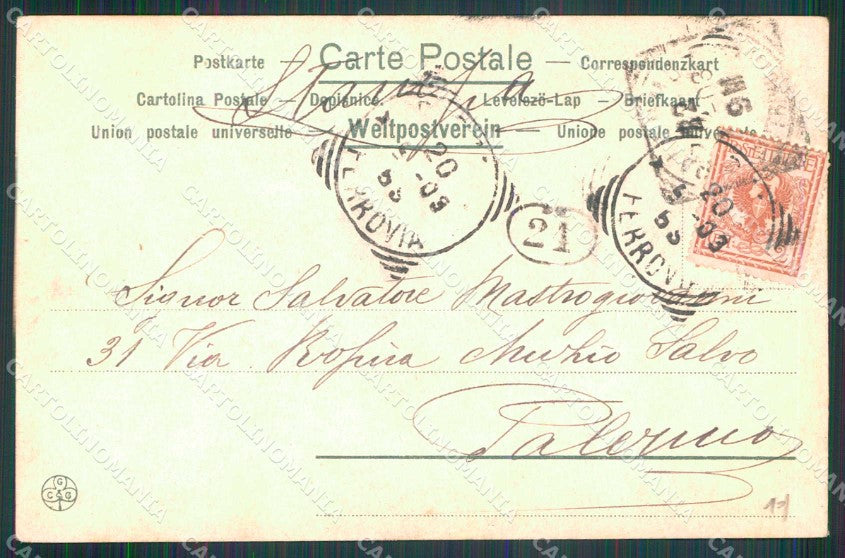 Postkarte — Carte Postale — Correspondenzkart
Cartolina Postale — Dopisnice — Levelező-Lap — Briefkaart
Union postale universelle — Weltpostverein — Unione postale universale
Stampa
20
5
-09
53
FERROVIA
20
5
-09
53
FERROVIA
21
Signor Salvatore Mastrogiovanni
31 Via Muzio Salvo
Palermo
G
C G
11
CARTOLINOMANIA